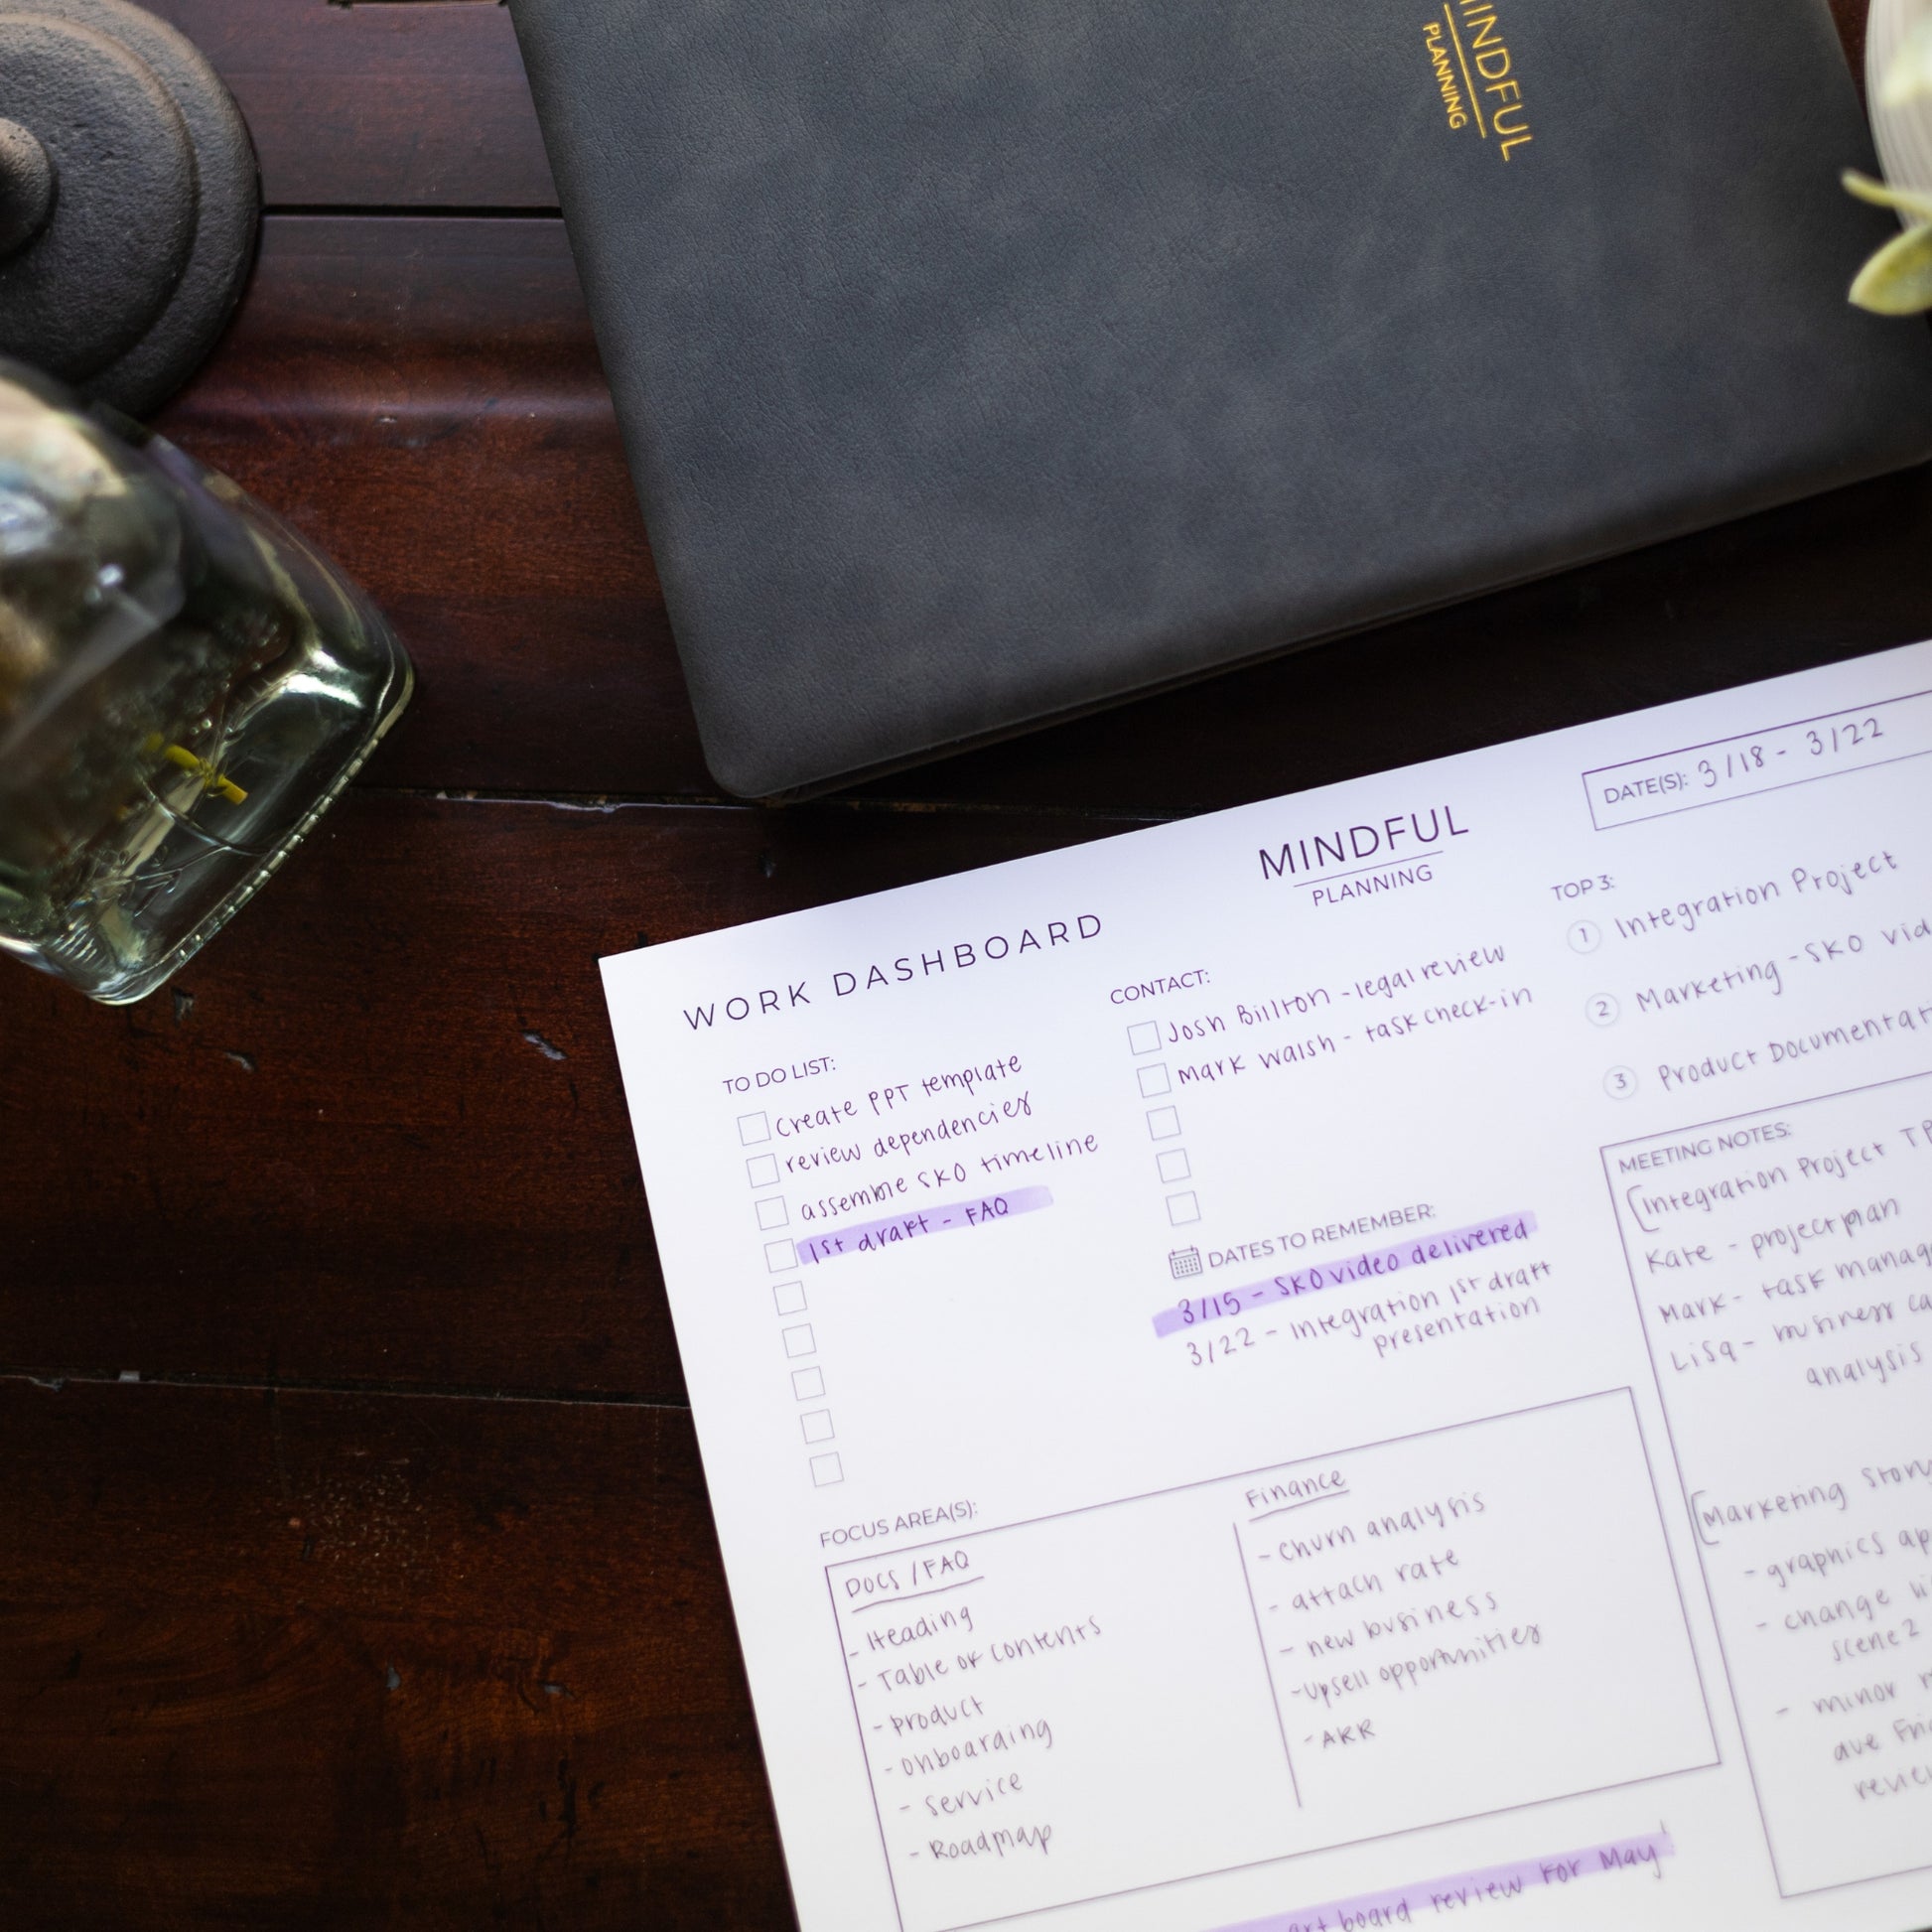 MINDFUL
PLANNING
MINDFUL
PLANNING
DATE(S): 3/18 - 3/22
WORK DASHBOARD
TO DO LIST:
Create PPT template
review dependencies
assemble SKO timeline
1st draft - FAQ
CONTACT:
Josh Billton - legal review
Mark Walsh - task check-in
DATES TO REMEMBER:
3/15 - SKO video delivered
3/22 - Integration 1st draft
presentation
TOP 3:
1 Integration Project
2 Marketing - SKO
3 Product
MEETING NOTES:
[Integration Project
Kate - project plan
Mark - task
Lisa - business
analysis
[Marketing
- graphics
- change
scene 2
- minor
FOCUS AREA(S):
DOCS / FAQ
- Heading
- Table of Contents
- product
- onboarding
- Service
- Roadmap
Finance
- churn analysis
- attach rate
- new business
- upsell opportunities
- ARR
board review for May